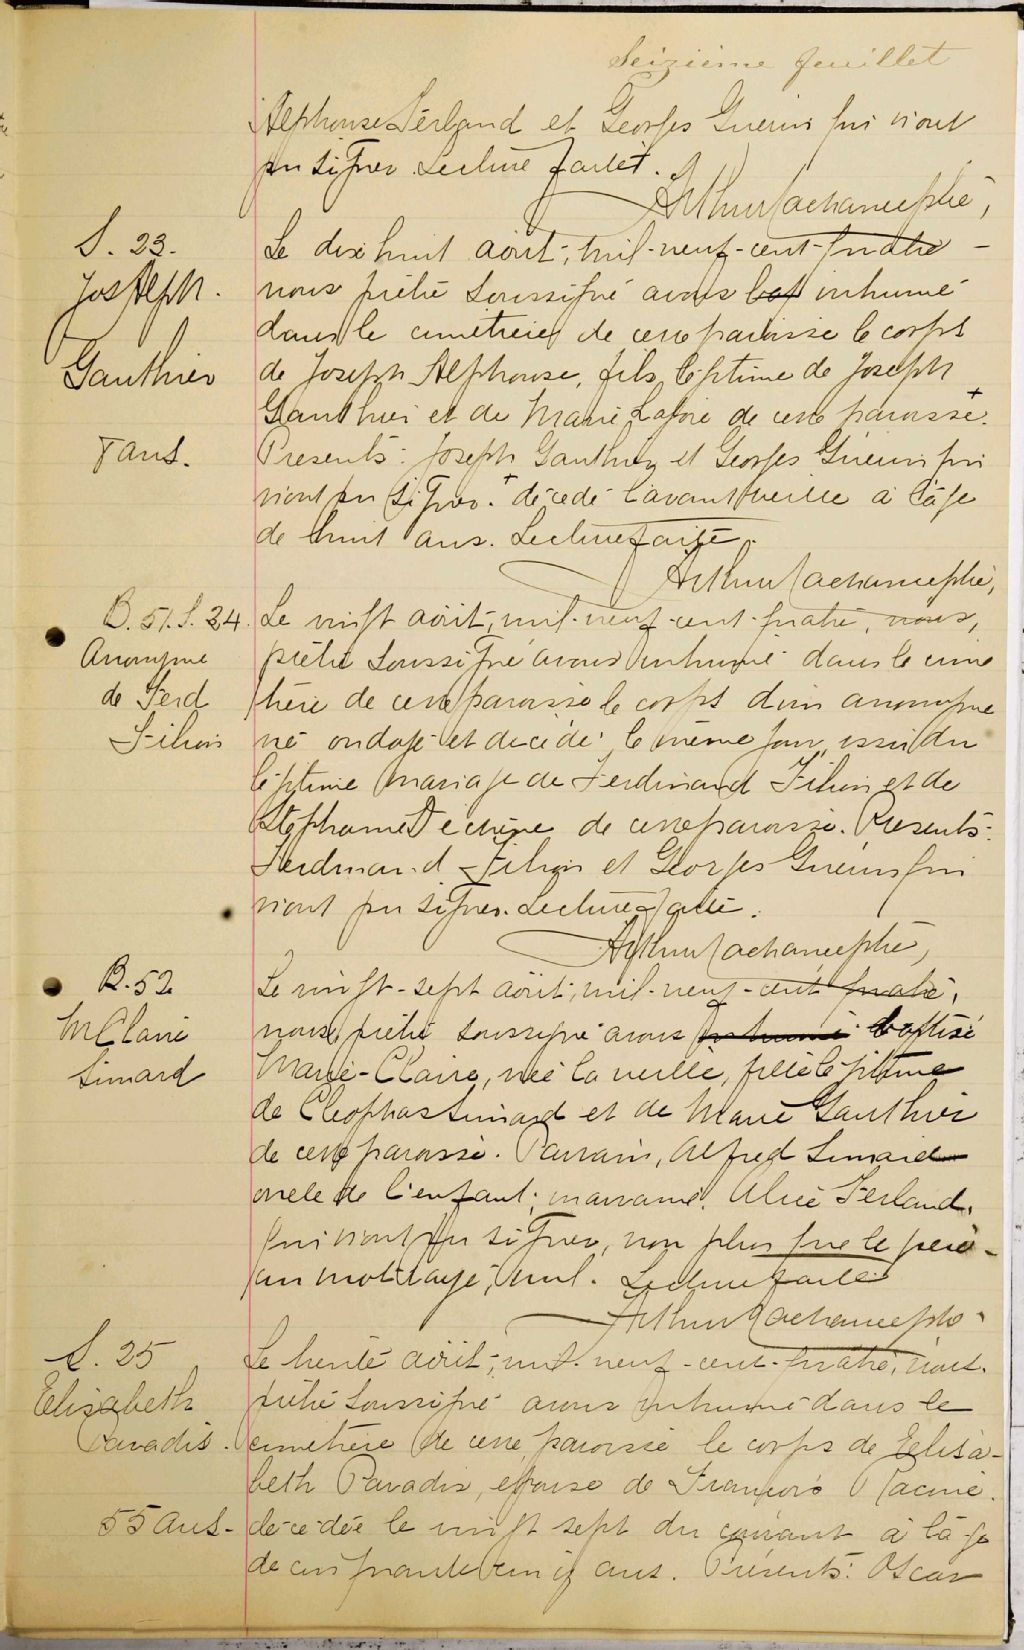 Seizième feuillet
Alphonse Ferland et Georges Guérin qui n'ont
pu signer. Lecture faite.
Arthur Lachance ptre,
S. 23.
Jos Alph.
Gauthier
8 ans.
Le dix huit août, mil-neuf-cent-quatre -
nous prêtre soussigné avons inhumé
dans le cimetière de cette paroisse le corps
de Joseph Alphonse, fils légitime de Joseph
Gauthier et de Marie Lajoie de cette paroisse +.
Présents: Joseph Gauthier et Georges Guérin qui
n'ont pu signer. + décédé l'avant veille à l'âge
de huit ans. Lecture faite.
Arthur Lachance ptre,
B. 51. S. 24.
Anonyme
de Ferd
Filion
Le vingt août, mil-neuf-cent-quatre, nous,
prêtre soussigné avons inhumé dans le cime
tière de cette paroisse le corps d'un anonyme
né ondoyé et décédé le même jour, issu du
légitime mariage de Ferdinand Filion et de
Stéphanie Dechêne de cette paroisse. Présents:
Ferdinand Filion et Georges Guérin qui
n'ont pu signer. Lecture faite.
Arthur Lachance ptre,
B. 52
M Claire
Simard
Le vingt-sept août, mil-neuf-cent-quatre,
nous, prêtre soussigné avons inhumé baptisé
Marie-Claire, née la veille, fille légitime
de Cléophas Simard et de Marie Gauthier
de cette paroisse. Parrain, Alfred Simard
oncle de l'enfant; marraine, Alice Ferland,
qui n'ont pu signer, non plus que le père -
un mot rayé, nul. Lecture faite
Arthur Lachance ptre
S. 25
Elisabeth
Paradis.
55 ans -
Le trente août, mil-neuf-cent-quatre, nous
prêtre soussigné avons inhumé dans le
cimetière de cette paroisse le corps de Elisa-
beth Paradis, épouse de François Racine.
décédée le vingt sept du courant à l'âge
de cinquante cinq ans. Présents: Oscar